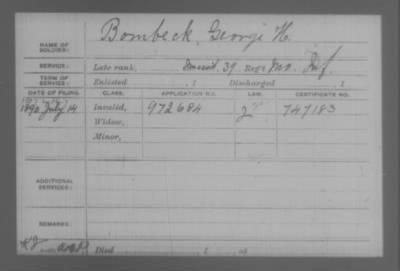 NAME OF SOLDIER: Bombeck, George H.
SERVICE: Late rank, 39 Reg't Mo. Inf.
TERM OF SERVICE: Enlisted , 1 Discharged , 1
DATE OF FILING. CLASS. APPLICATION NO. LAW. CERTIFICATE NO.
1890 July 14 Invalid, 972684 747183
Widow,
Minor,
ADDITIONAL SERVICES:
REMARKS:
Died , 1 , at